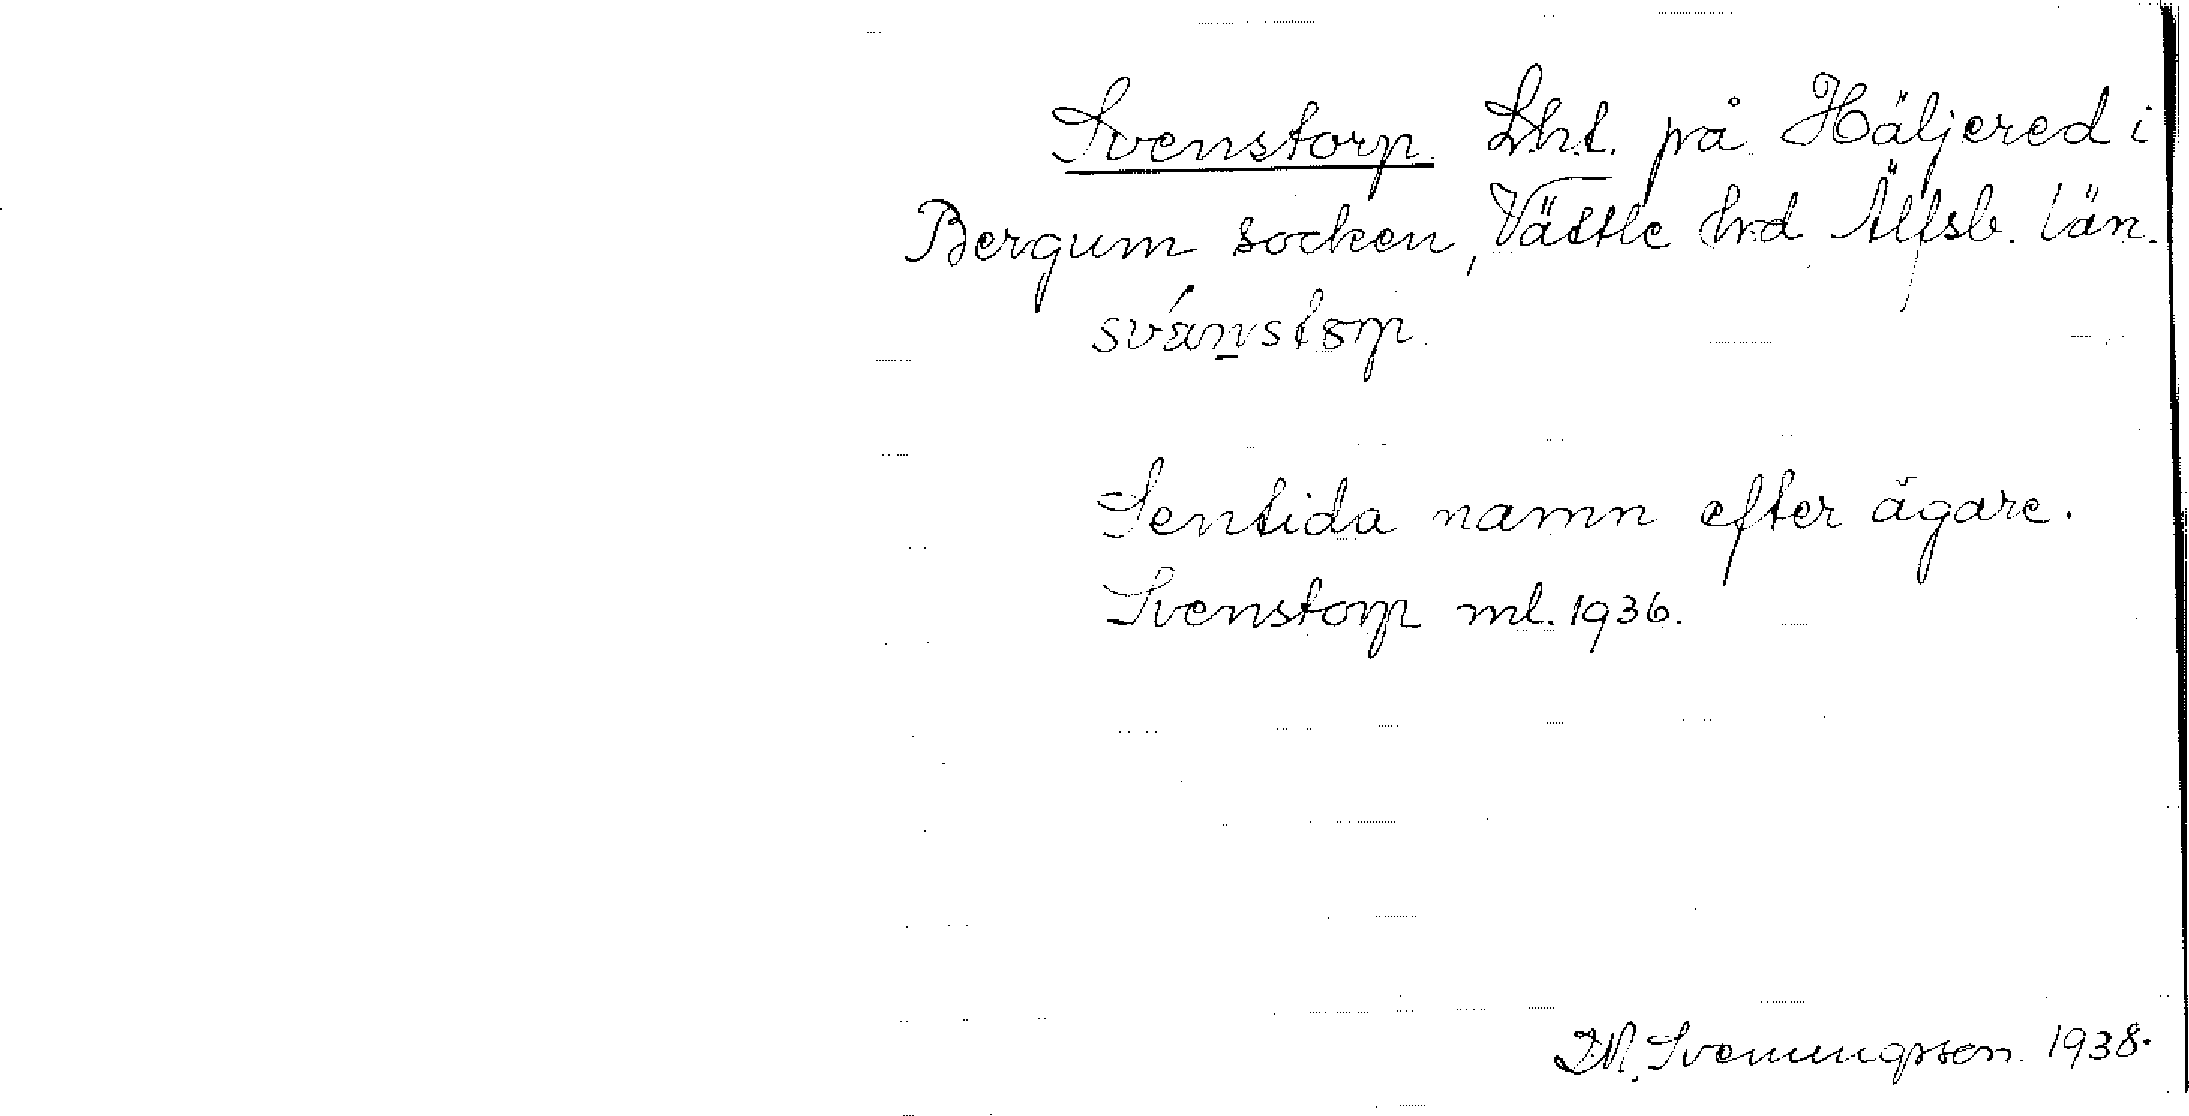 Svenstorp. Lht. på Häljered i
Bergum socken, Vättle hrd Älfsb. län.
svánstorp.
Sentida namn efter ägare.
Svenstorp ml. 1936.
Svenungsson. 1938.